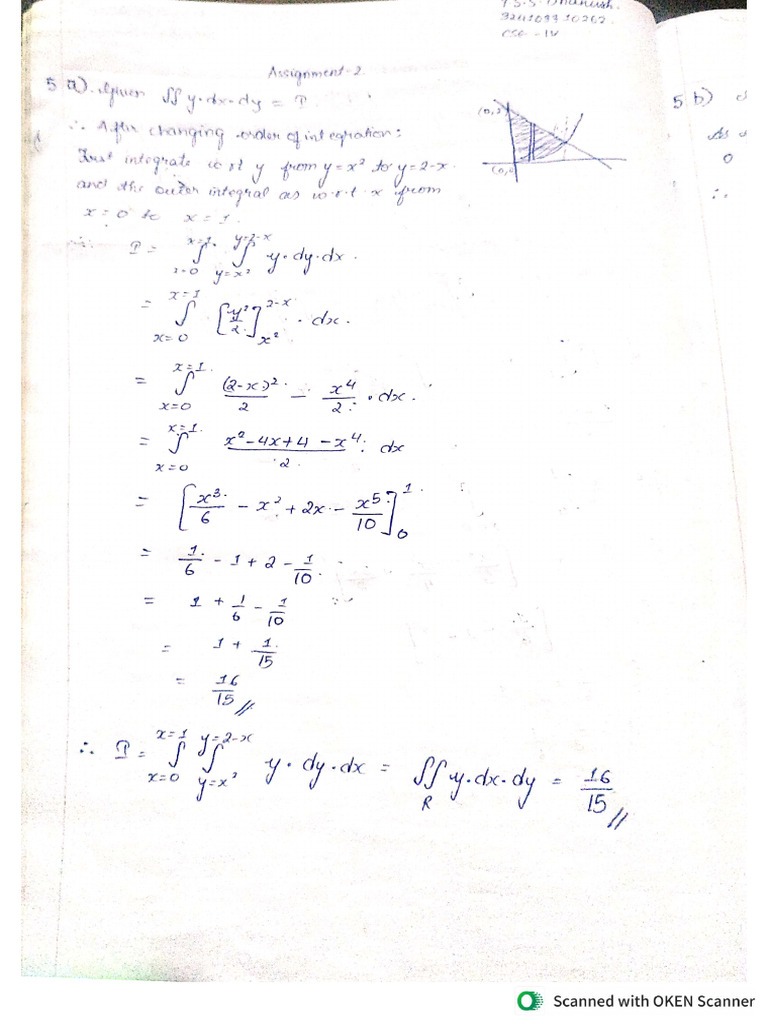 9241099 10262.
CSE - IV
Assignment-2.
5 a). Given ∬ y·dx·dy = I.
(0,2)
(0,0)
5 b)
∴ After changing order of integration:
First integrate w.r.t y from y=x² to y=2-x.
and the outer integral as w.r.t. x from
x=0 to x=1.
∴ I = ∫_{x=0}^{x=1} ∫_{y=x²}^{y=2-x} y·dy·dx.
= ∫_{x=0}^{x=1} [y²/2]_{x²}^{2-x} · dx.
= ∫_{x=0}^{x=1} (2-x)²/2 - x⁴/2 · dx.
= ∫_{x=0}^{x=1} (x²-4x+4-x⁴)/2 dx
= [x³/6 - x² + 2x - x⁵/10]_0^1
= 1/6 - 1 + 2 - 1/10.
= 1 + 1/6 - 1/10
= 1 + 1/15
= 16/15 //
∴ I = ∫_{x=0}^{x=1} ∫_{y=x²}^{y=2-x} y·dy·dx = ∬_R y·dx·dy = 16/15 //
Scanned with OKEN Scanner